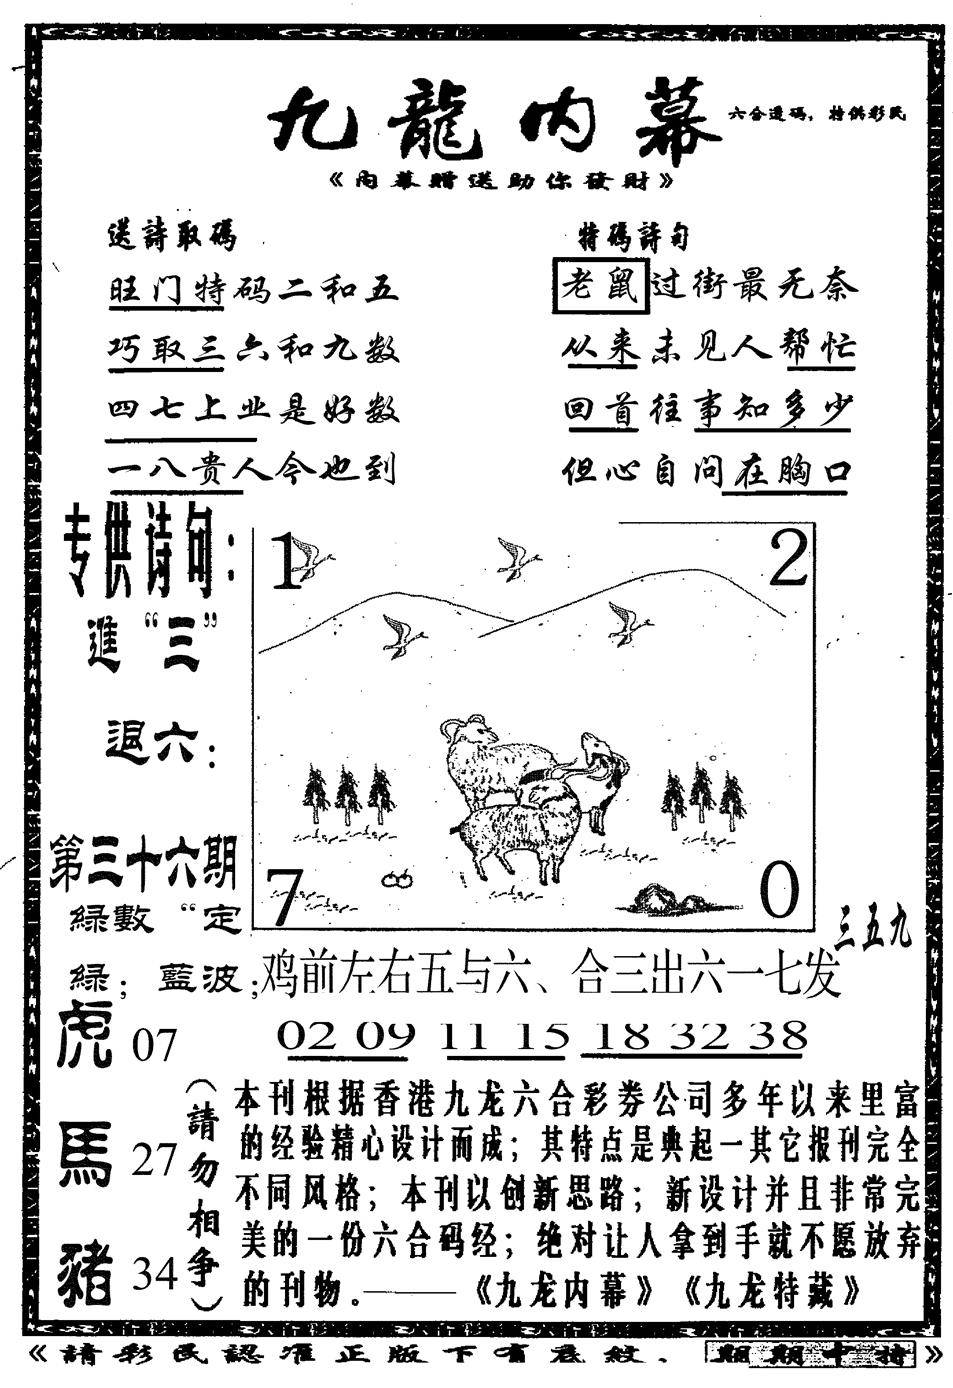 九龍内幕 六合透码，特供彩民
《内幕赠送助你發財》
送詩取碼
旺门特码二和五
巧取三六和九数
四七上业是好数
一八贵人今也到
特碼詩句
老鼠过街最无奈
从来未见人帮忙
回首往事知多少
但心自问在胸口
专供诗句：
進“三”
退六：
第三十六期
綠數“定
綠；藍波；
1 2
7 0
三五九
鸡前左右五与六、合三出六一七发
02 09 11 15 18 32 38
虎 07
馬 27
豬 34
（請勿相争）
本刊根据香港九龙六合彩券公司多年以来里富
的经验精心设计而成；其特点是典起一其它报刊完全
不同风格；本刊以创新思路；新设计并且非常完
美的一份六合码经；绝对让人拿到手就不愿放弃
的刊物。——《九龙内幕》《九龙特藏》
《請彩民認准正版下有卷紋．期期中特》